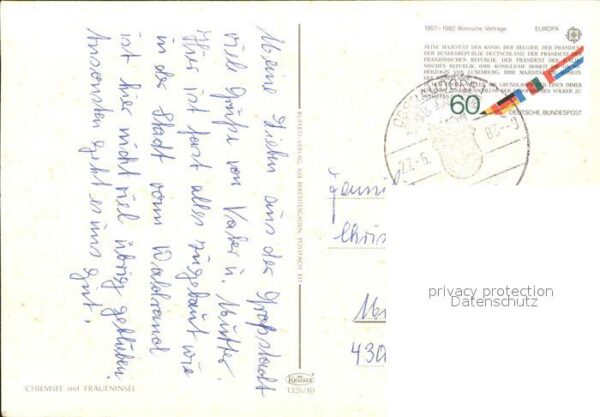 Meine Lieben aus der Großstadt
viele Grüße von Vater u. Mutter.
Hier ist fast alles zugebaut wie
in der Stadt vom Waldrand
ist hier nicht viel übrig geblieben.
Ansonsten geht es uns gut.
CHIEMSEE mit FRAUENINSEL
RUPERTI-VERLAG, 824 BERCHTESGADEN, POSTFACH
Krüger
1326/30
1957–1982 Römische Verträge
EUROPA
SEINE MAJESTÄT DER KÖNIG DER BELGIER, DER PRÄSIDENT
DER BUNDESREPUBLIK DEUTSCHLAND, DER PRÄSIDENT DER
FRANZÖSISCHEN REPUBLIK, DER PRÄSIDENT DER
NISCHEN REPUBLIK, IHRE KÖNIGLICHE HOHEIT
HERZOGIN VON LUXEMBURG, IHRE MAJESTÄT
DER
DIE GRUNDLAGEN EINES IMMER
VÖLKER ZU
60
DEUTSCHE BUNDESPOST
27.-6.
Fami
Chris
430
privacy protection
Datenschutz